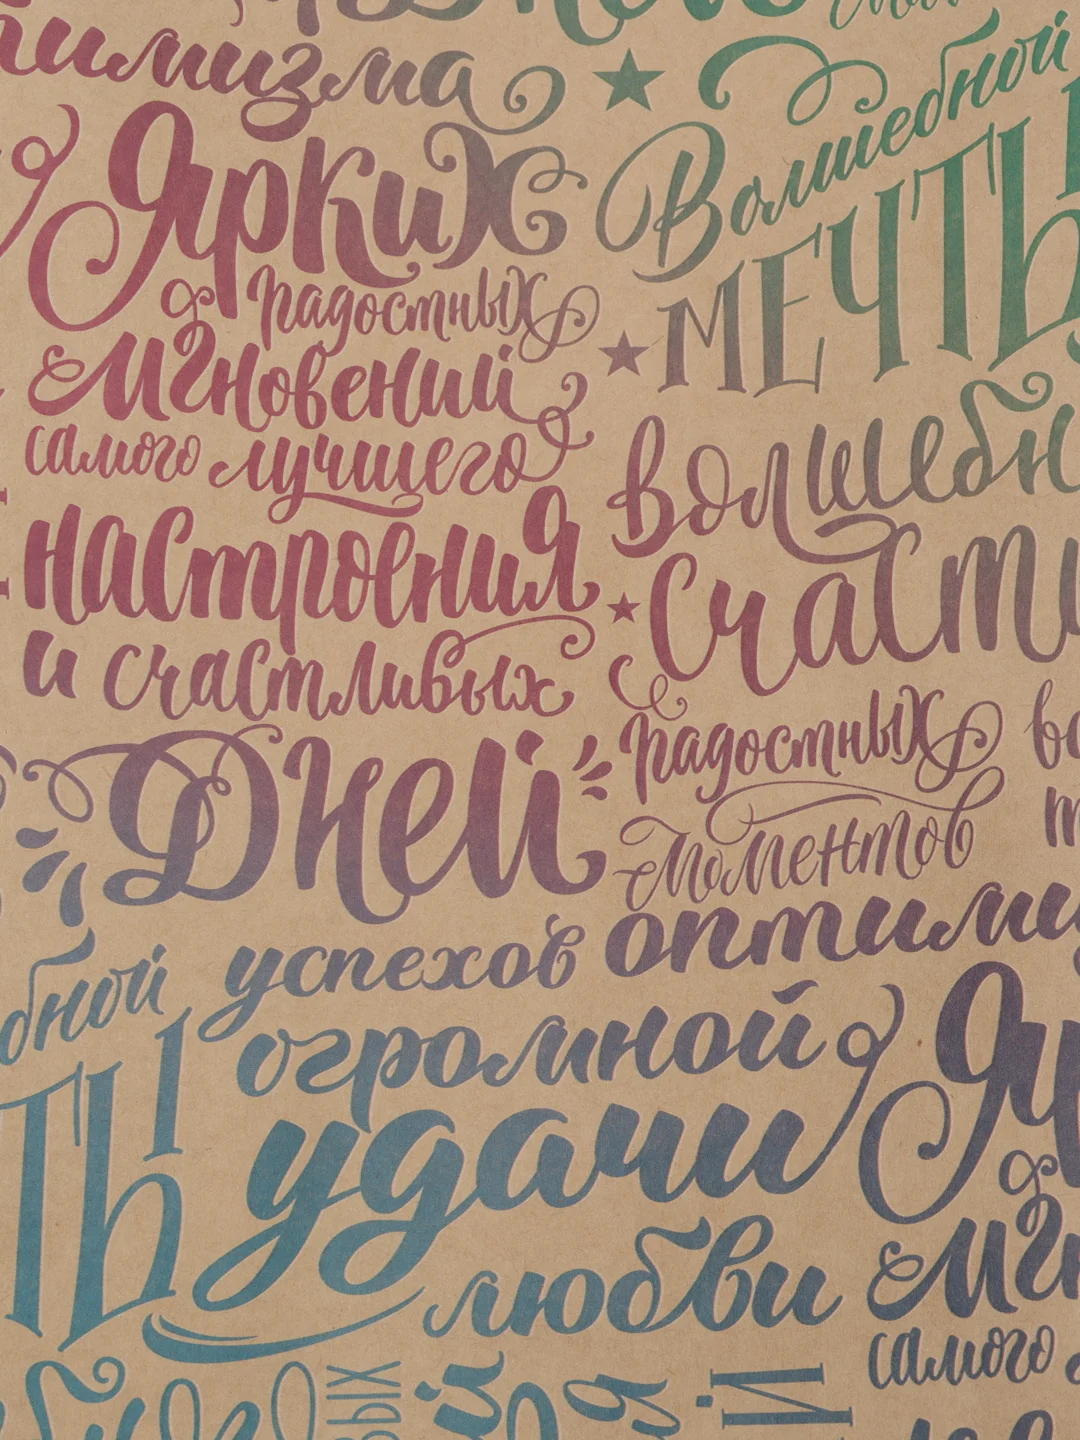 тимизма
Ярких
радостных
мгновений
самого лучшего
настроения
и счастливых
Дней
успехов
огромной
удачи
любви
Волшебной
МЕЧТЫ
волшебн
счасть
радостных
моментов
оптими
бной
ТЫ
Яр
мгн
самого
ых
ой